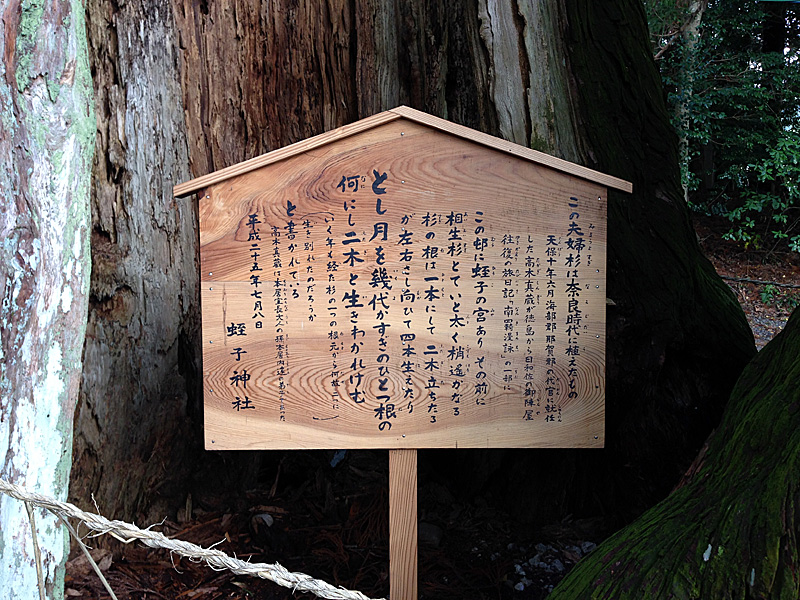 この夫婦杉は奈良時代に植えたもの
天保十年六月海部郡那賀郡の代官に就任
した高木真蔵が徳島から日和佐の御陣屋
往復の旅日記「南羇漫詠」の一部に
この邨に蛭子の宮あり その前に
相生杉とていと太く梢遥かなる
杉の根は一本にして 二木立ちたる
が左右さし向ひて四本生えたり
とし月を幾代かすぎのひとつ根の
何にし二木と生きわかれけむ
いく年も経た杉の一つの根元から何故二つに
生き別れたのだろうか
と書かれている
平成二十五年七月八日
蛭子神社